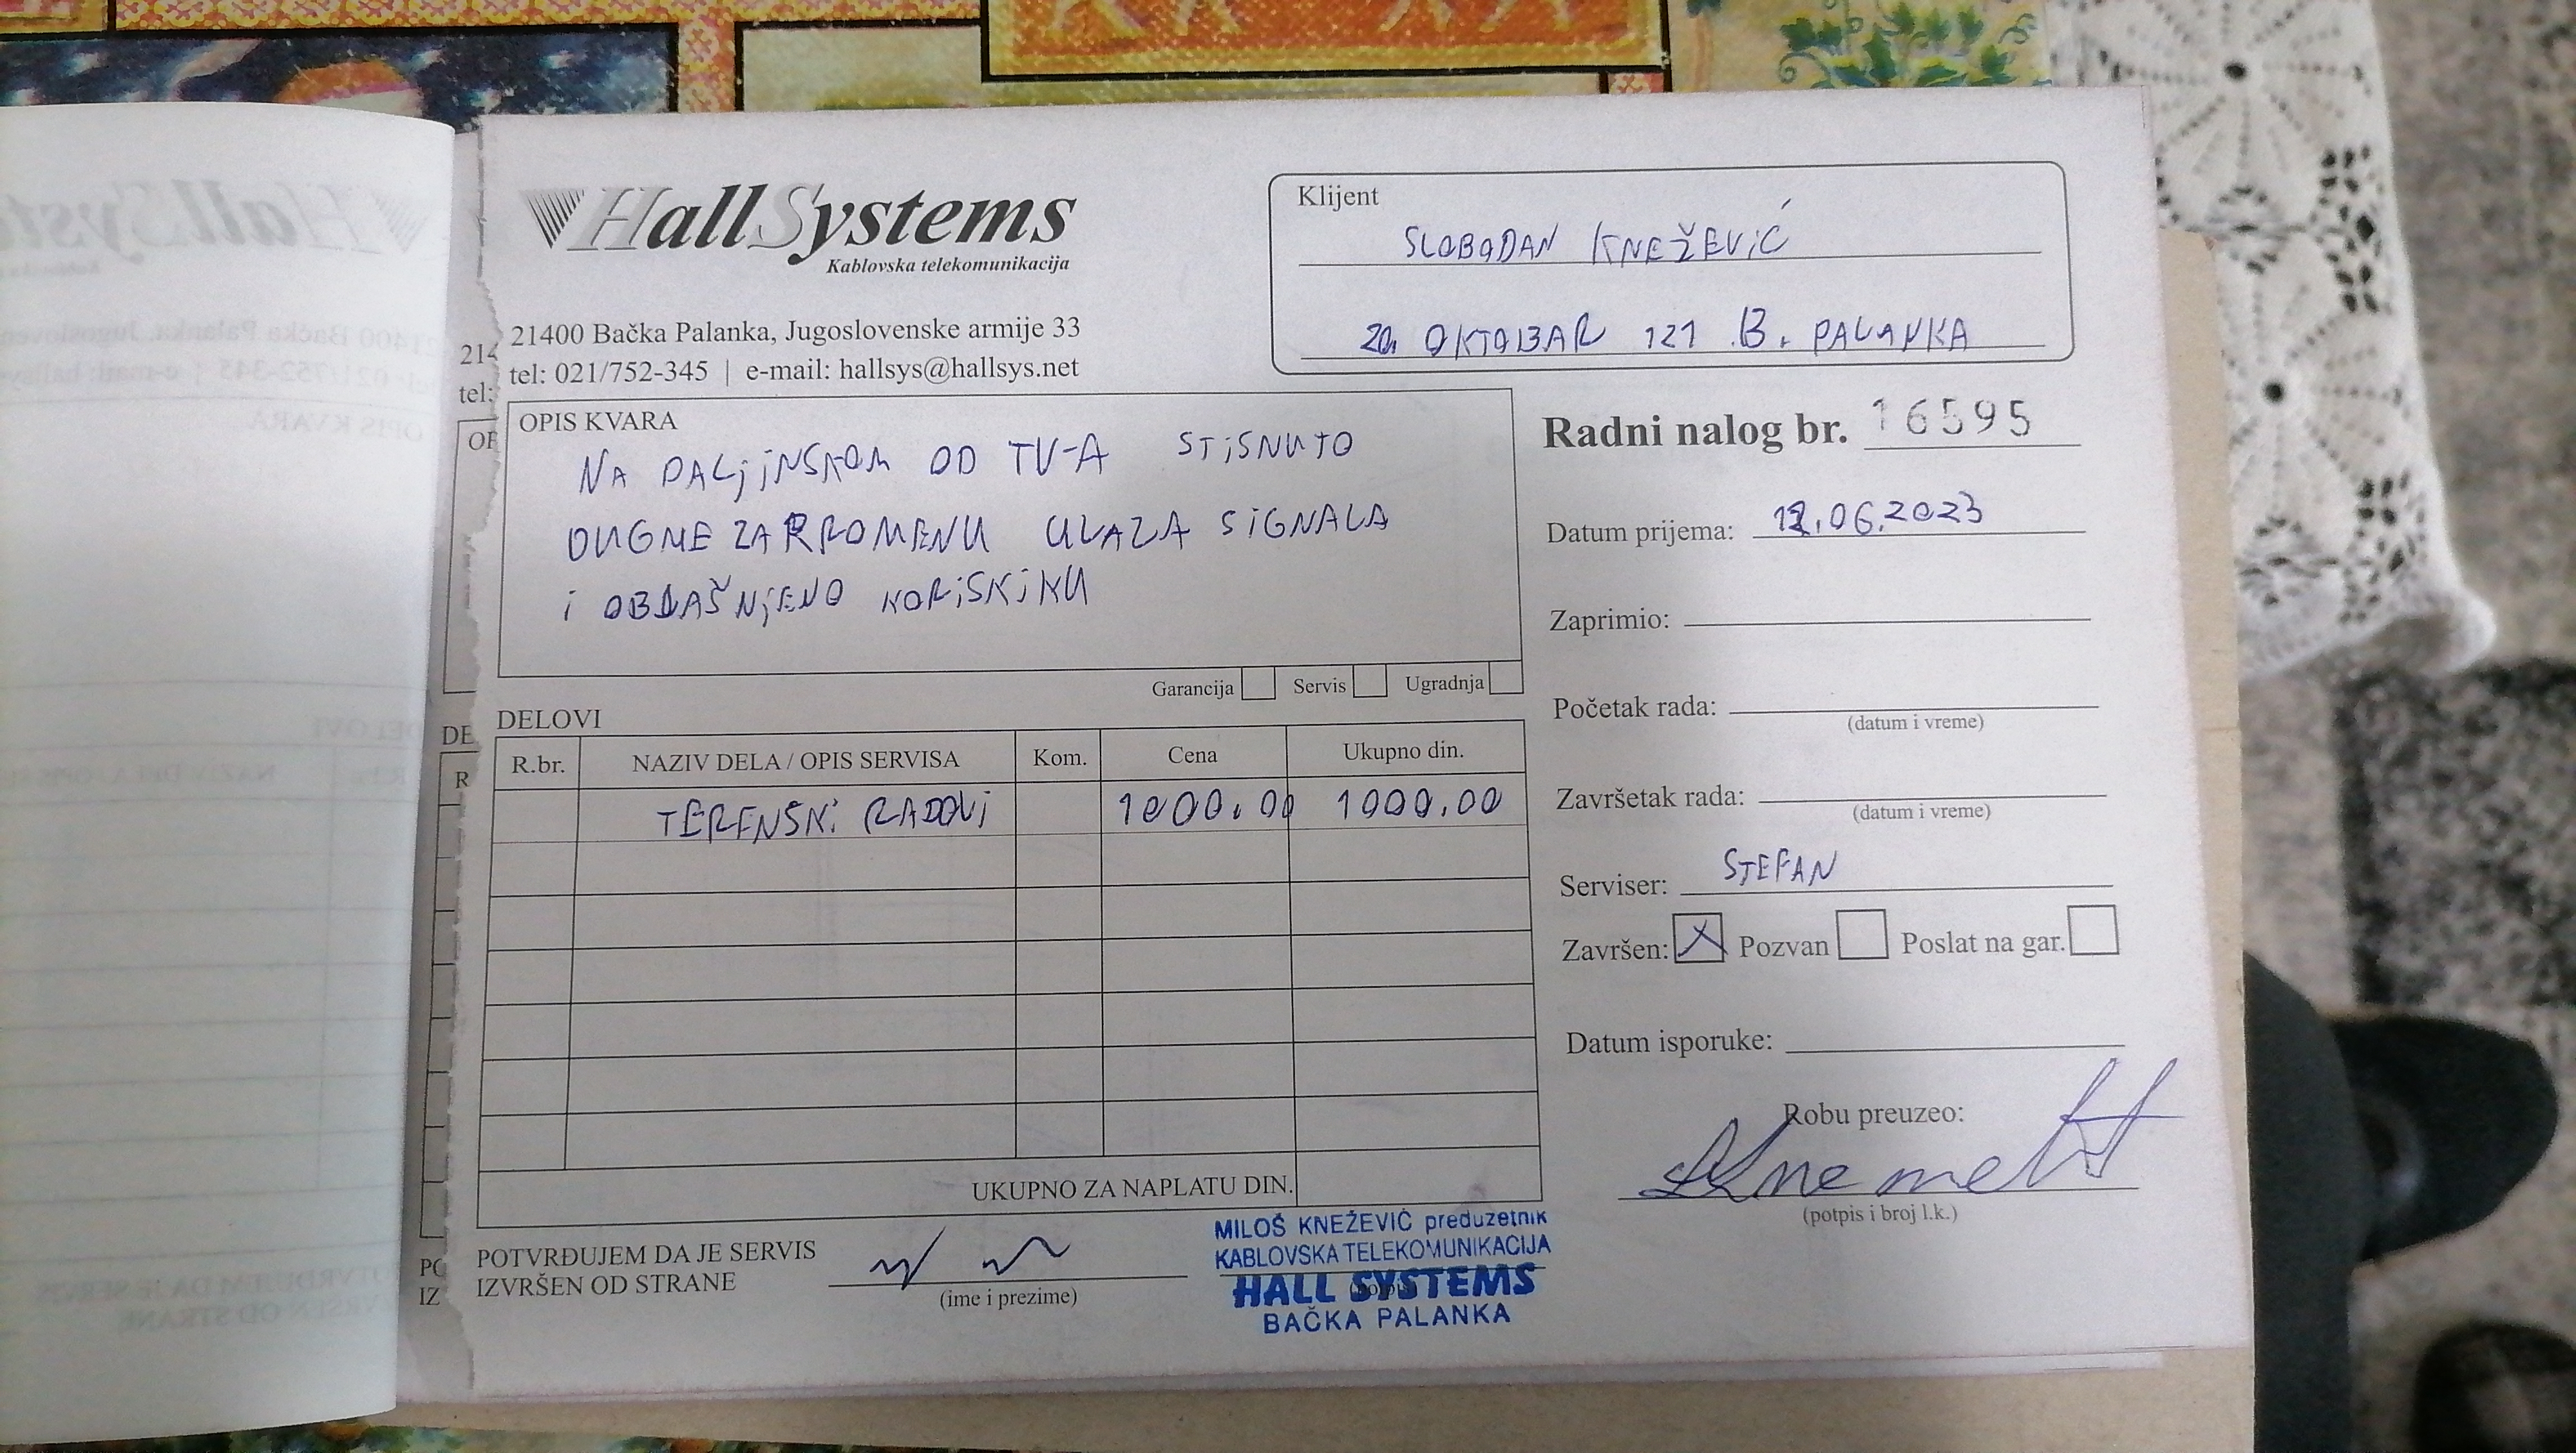 HallSystems
Kablovska telekomunikacija
21400 Bačka Palanka, Jugoslovenske armije 33
tel: 021/752-345 | e-mail: hallsys@hallsys.net
Klijent
SLOBODAN KNEŽEVIĆ
20. OKTOBAR 121 B. PALANKA
OPIS KVARA
NA DALjiNSKOM OD TV-A STiSNUTO
DUGME ZA PROMENU ULAZA SiGNALA
i OBJAŠNjENO KORiSNiKU
Garancija Servis Ugradnja
Radni nalog br. 16595
Datum prijema: 12.06.2023
Zaprimio:
Početak rada:
(datum i vreme)
Završetak rada:
(datum i vreme)
Serviser: STEFAN
Završen: X Pozvan Poslat na gar.
Datum isporuke:
Robu preuzeo:
(potpis i broj l.k.)
DELOVI
R.br. NAZIV DELA / OPIS SERVISA Kom. Cena Ukupno din.
TERENSKi RADOVi 1000.00 1000.00
UKUPNO ZA NAPLATU DIN.
POTVRĐUJEM DA JE SERVIS
IZVRŠEN OD STRANE
(ime i prezime)
MILOŠ KNEŽEVIĆ preduzetnik
KABLOVSKA TELEKOMUNIKACIJA
HALL SYSTEMS
BAČKA PALANKA
214
tel:
OF
DE
R
PO
IZ